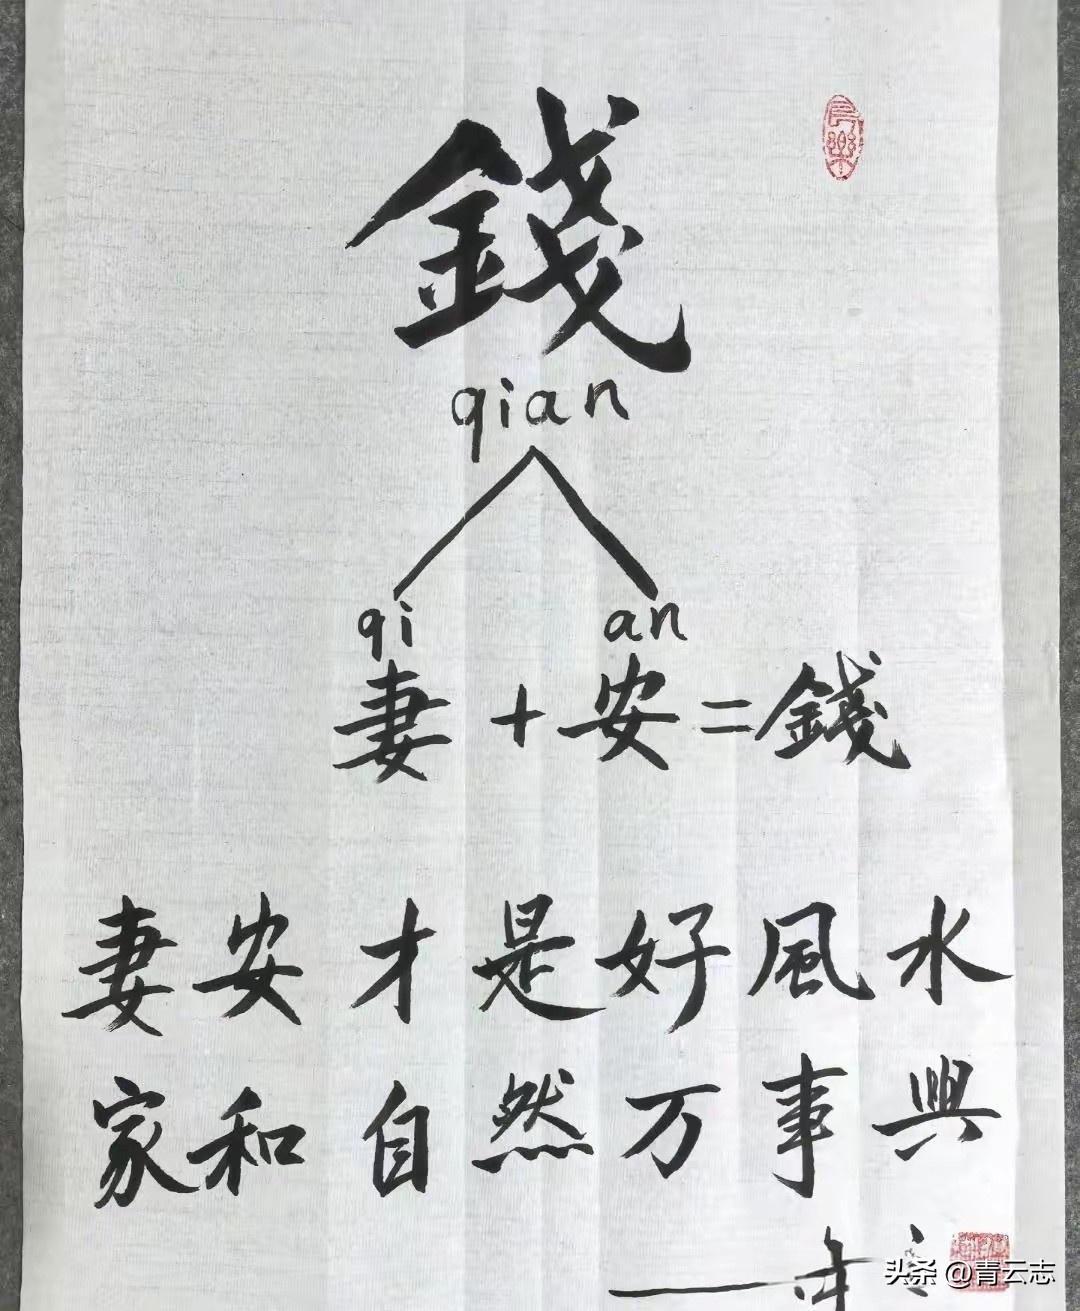 錢
qian
qi an
妻+安=錢
妻安才是好風水
家和自然万事興
头条 @青云志